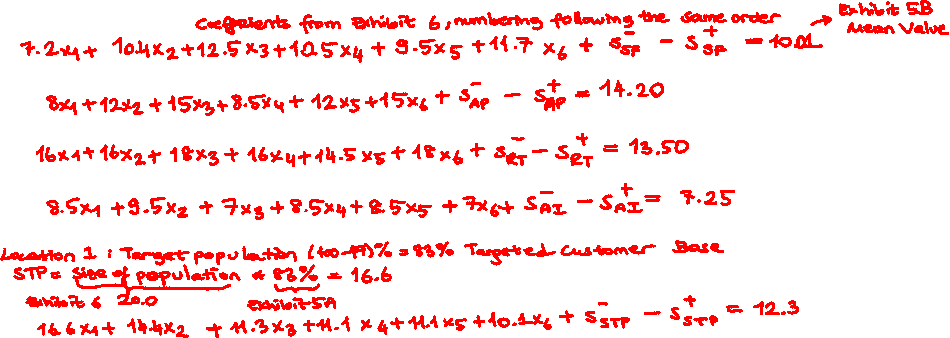 Coefficients from Exhibit 6, numbering following the same order → Exhibit 5B
Mean Value
7.2x1 + 10.4x2 + 12.5x3 + 10.5x4 + 9.5x5 + 11.7x6 + S⁻SF − S⁺SF = 10.01
8x1 + 12x2 + 15x3 + 8.5x4 + 12x5 + 15x6 + S⁻AP − S⁺AP = 14.20
16x1 + 16x2 + 18x3 + 16x4 + 14.5x5 + 18x6 + S⁻RT − S⁺RT = 13.50
8.5x1 + 9.5x2 + 7x3 + 8.5x4 + 8.5x5 + 7x6 + S⁻AI − S⁺AI = 7.25
Location 1 : Target population (100-17)% = 83% Targeted Customer Base
STP = Size of population * 83% = 16.6
Exhibit 6 20.0 Exhibit 5A
16.6x1 + 14.4x2 + 11.3x3 + 11.1x4 + 11.1x5 + 10.1x6 + S⁻STP − S⁺STP = 12.3